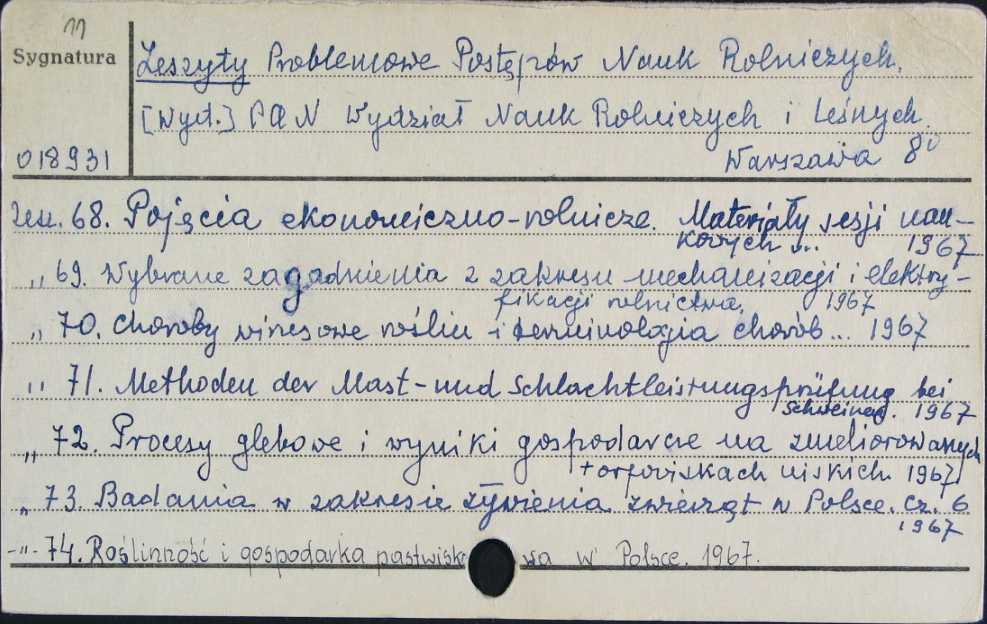 11
Sygnatura
Zeszyty Problemowe Postępów Nauk Rolniczych.
[Wyd.] PAN Wydział Nauk Rolniczych i Leśnych.
018931
Warszawa 8°
zesz. 68. Pojęcia ekonomiczno-rolnicze. Materiały sesji nau-
kowych ... 1967
„ 69. Wybrane zagadnienia z zakresu mechanizacji i elektry-
fikacji rolnictwa. 1967
„ 70. Choroby wirusowe roślin i terminologia chorób ... 1967
„ 71. Methoden der Mast- und Schlachtleistungsprüfung bei
Schweinen. 1967
„ 72. Procesy glebowe i wyniki gospodarcze na zmeliorowanych
torfowiskach niskich. 1967
„ 73. Badania w zakresie żywienia zwierząt w Polsce. Cz. 6
1967
-„- 74. Roślinność i gospodarka pastwiskowa w Polsce. 1967.